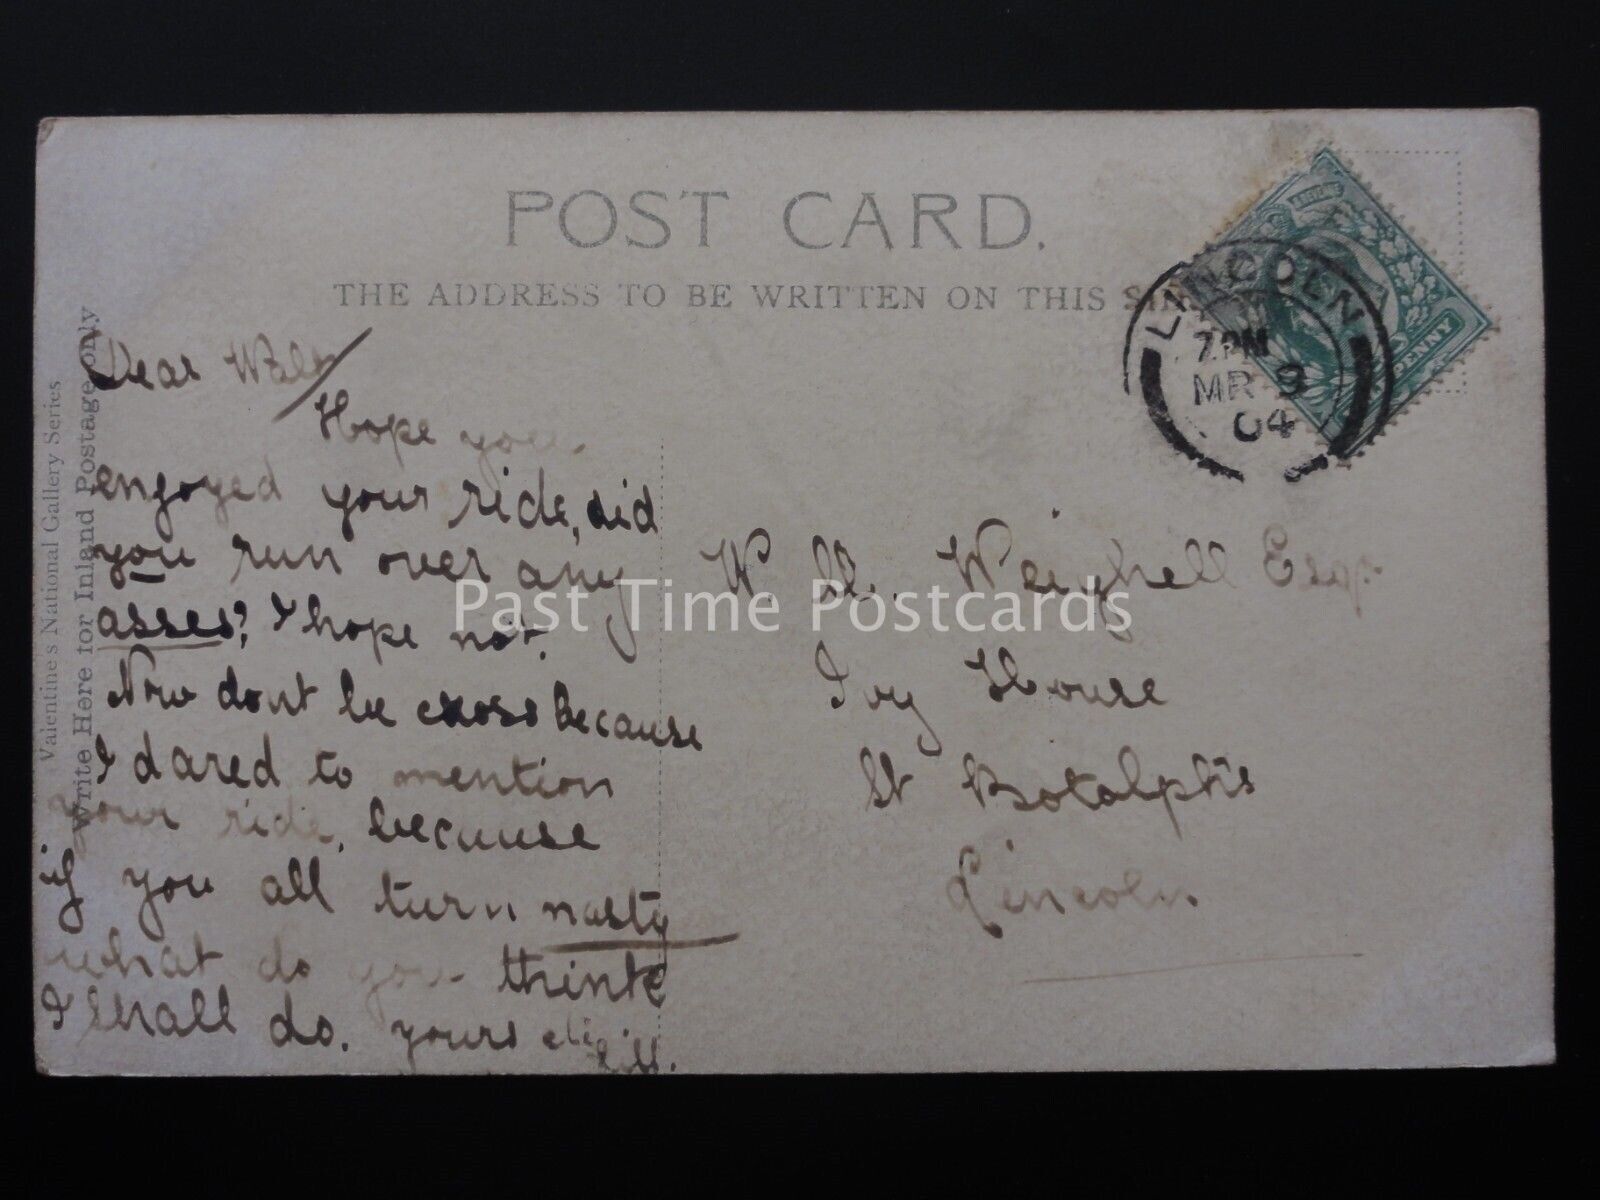 POST CARD.
THE ADDRESS TO BE WRITTEN ON THIS
LINCOLN
7.PM
MR 9
04
PENNY
Valentine's National Gallery Series
Write Here for Inland Postage only
Dear Walt
Hope you
enjoyed your ride, did
you run over any
asses? I hope not.
Now dont be cross because
I dared to mention
your ride, because
if you all turn nasty
what do you think
I shall do. yours
W Weighell Esq.
Ivy House
St Botolph's
Lincoln
Past Time Postcards